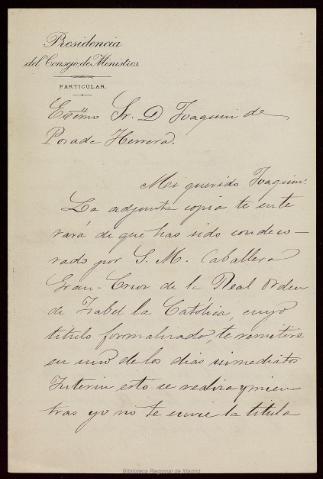 Presidencia
del Consejo de Ministros
PARTICULAR.
Exmo Sr. D Joaquin de
Posada Herrera.
Mi querido Joaquin:
La adjunta copia te ente
rará de que has sido condeco-
rado por S. M. Caballero
Gran-Cruz de la Real Orden
de Isabel la Católica, cuyo
título formalizado, te remitiré
en uno de los dias inmediatos
Interin esto se realiza y mien
tras yo no te envie el título
Biblioteca Nacional de Madrid